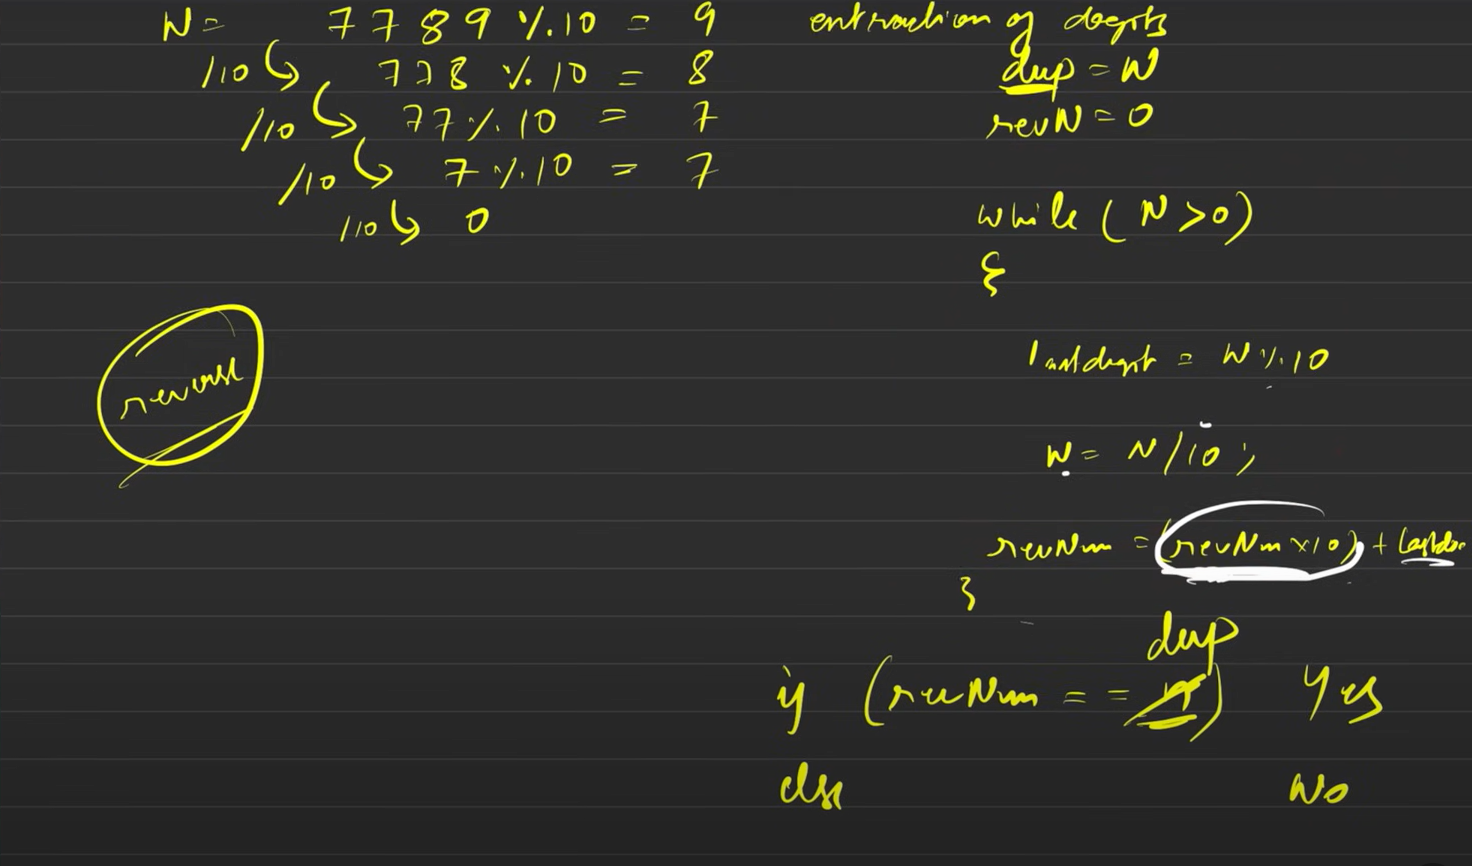 N = 7789 % 10 = 9
/10 778 % 10 = 8
/10 77 % 10 = 7
/10 7 % 10 = 7
/10 0
reverse
extraction of digits
dup = N
revN = 0
while ( N > 0 )
{
lastdigit = N % 10
N = N / 10 ;
revNum = (revNum × 10) + lastdi
}
dup
if (revNum == n) Yes
else No